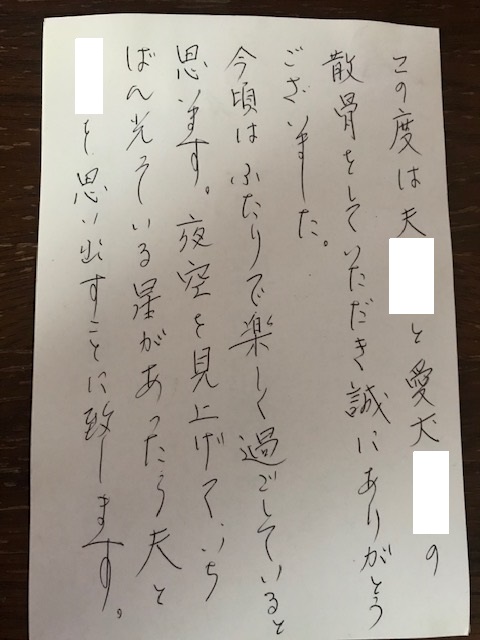 この度は夫と愛犬の
散骨をしていただき誠にありがとう
ございました。
今頃はふたりで楽しく過ごしていると
思います。夜空を見上げていち
ばん光っている星があったら夫と
を思い出すことに致します。